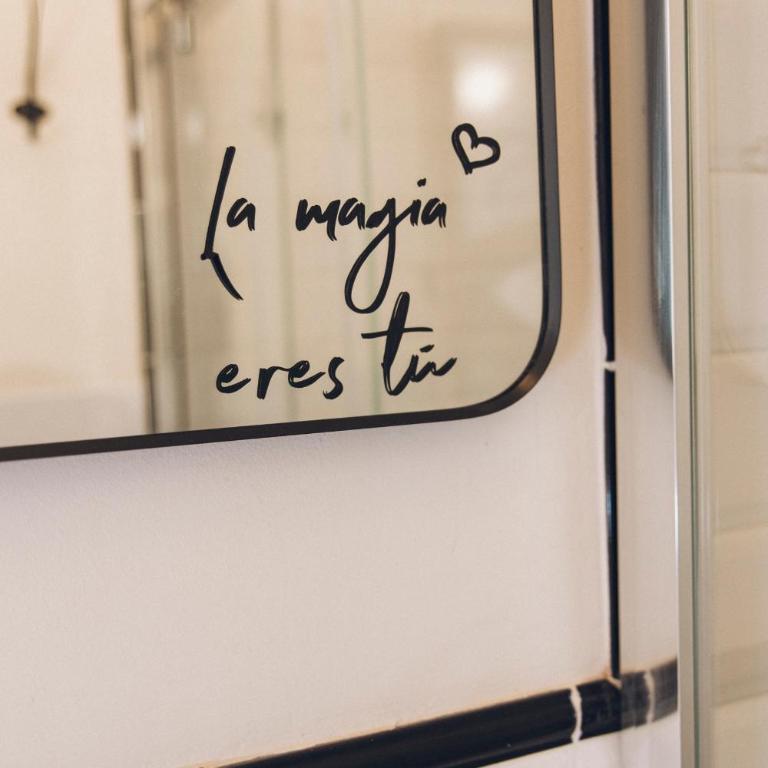 La magia
eres tú